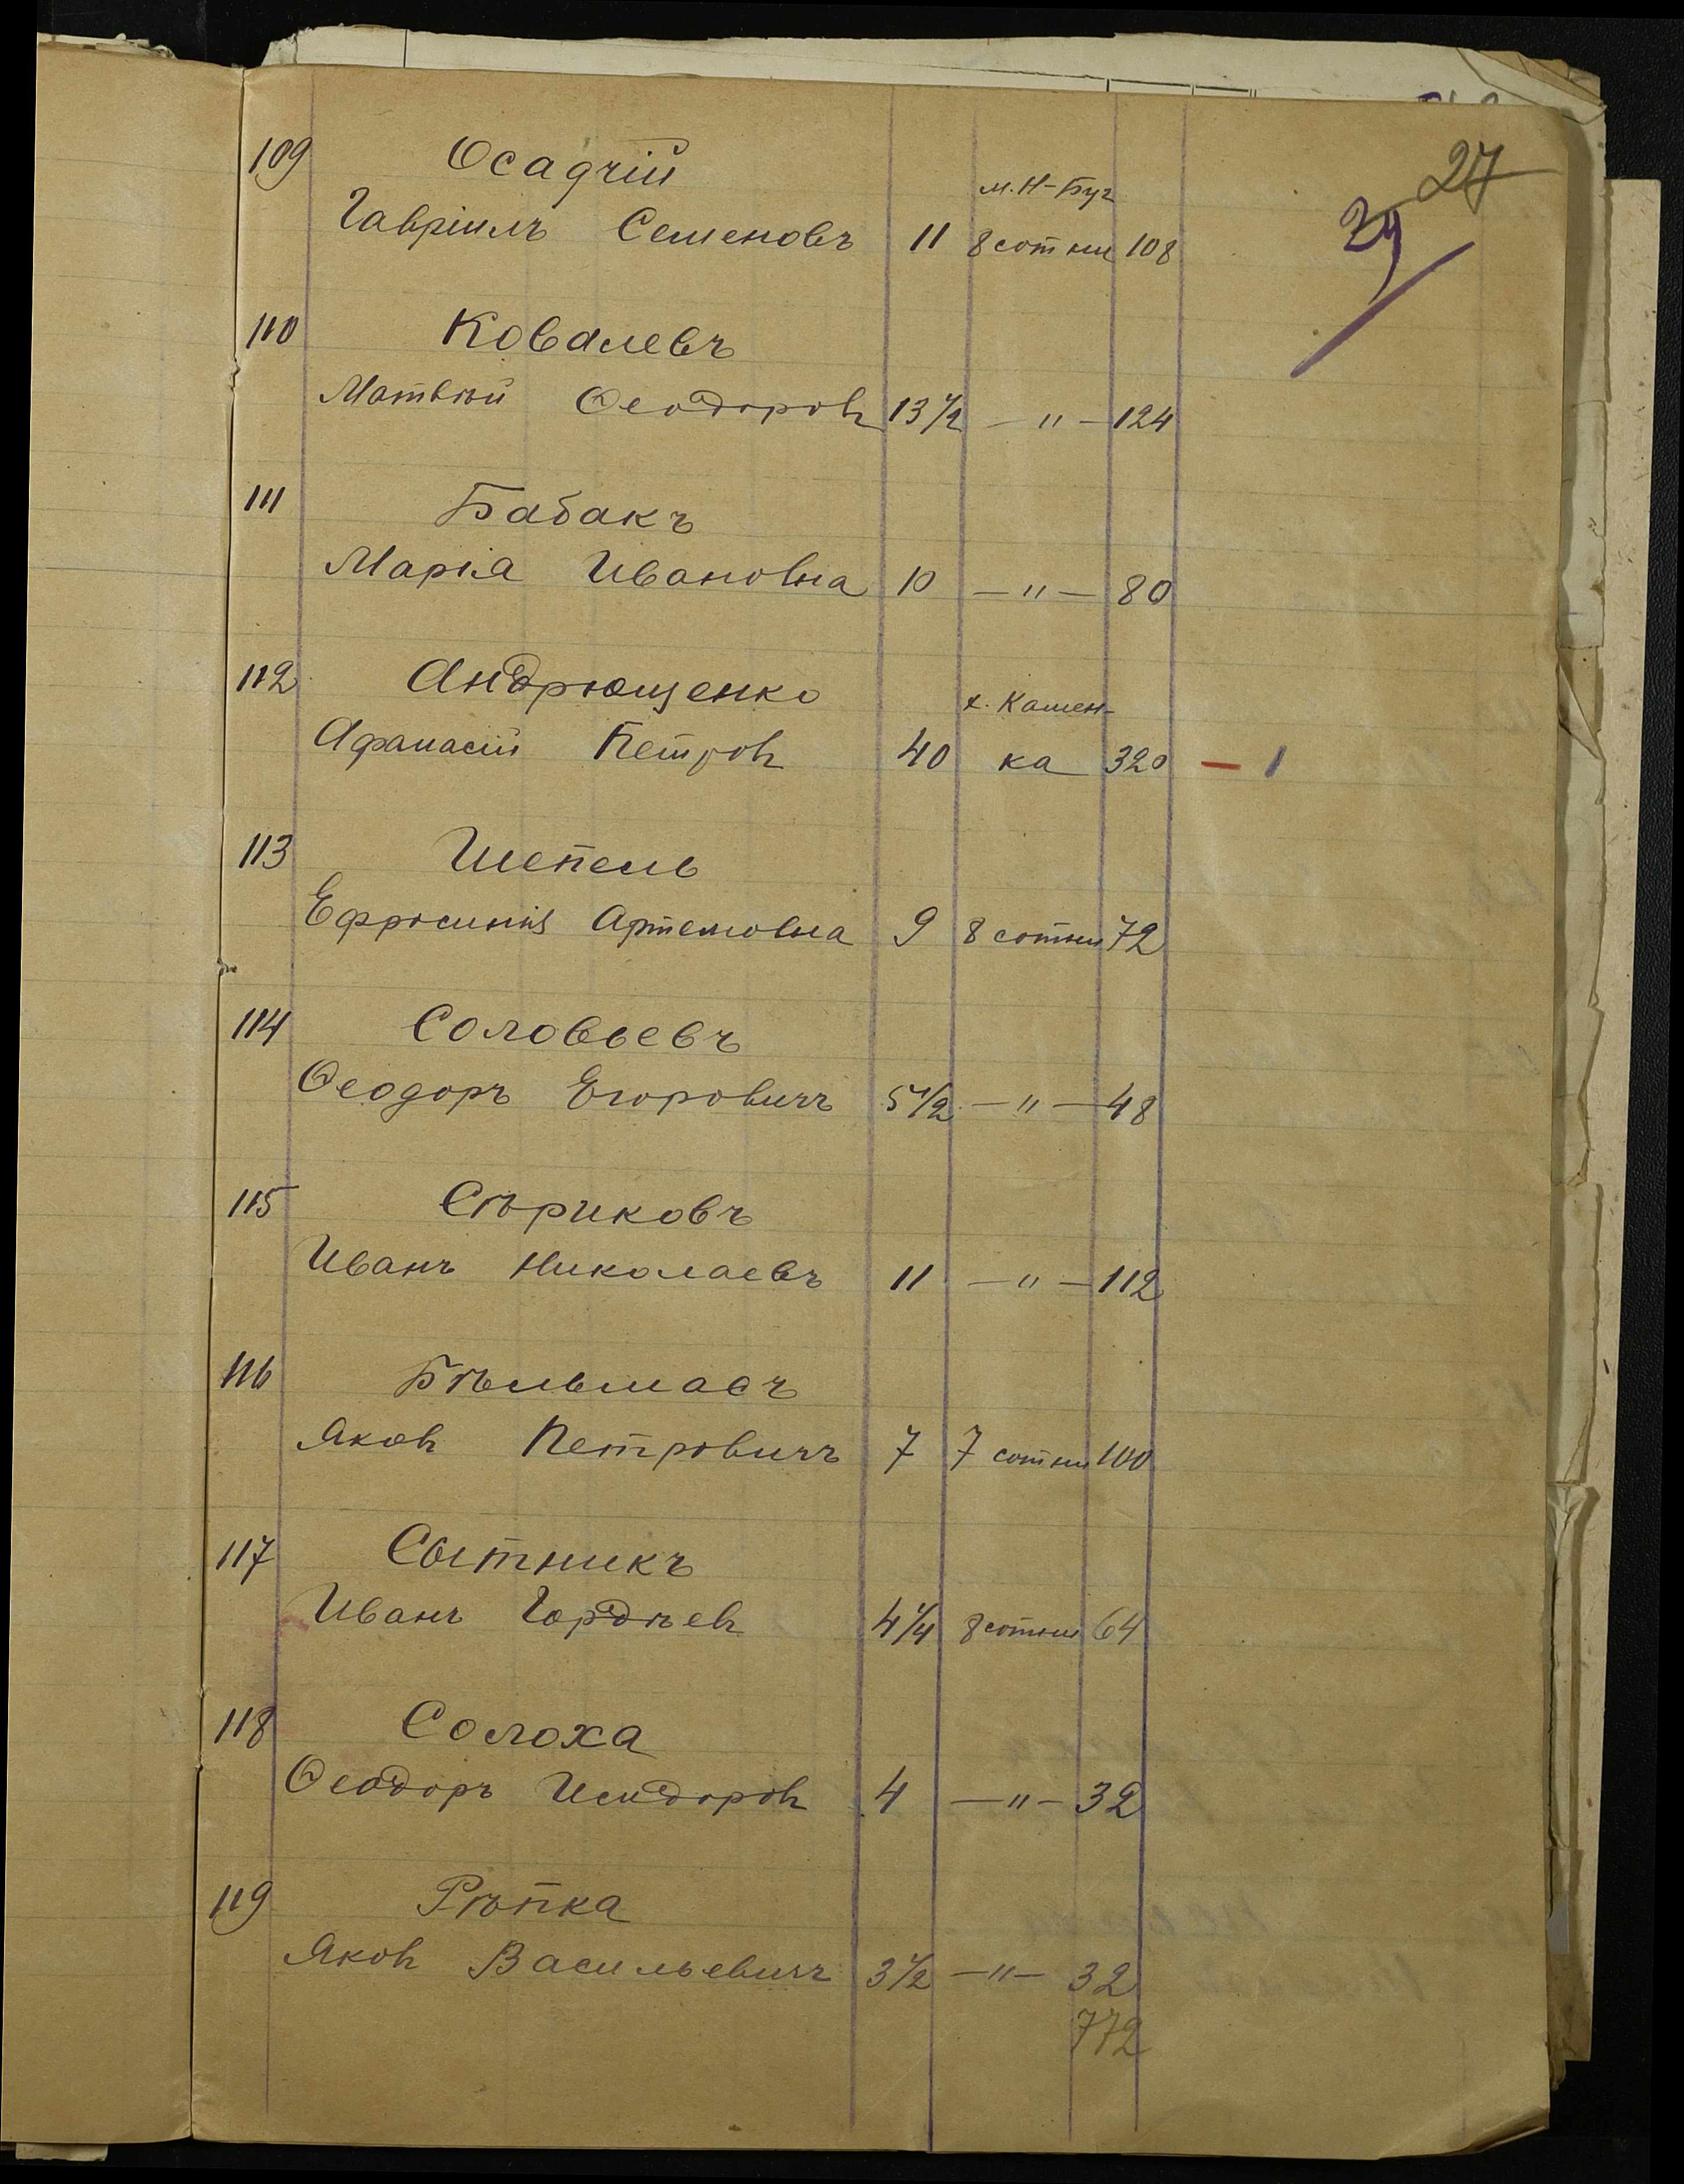 27
39
109 Осадчій
м. Н-Буг
Гавріилъ Семеновъ 11 8 сотни 108
110 Ковалевъ
Матвѣй Ѳеодоровъ 13 1/2 — " — 124
111 Бабакъ
Марія Ивановна 10 — " — 80
112 Андрющенко
х. Камен-
Афанасій Петровъ 40 ка 320 — 1
113 Шепель
Ефросинія Артемовна 9 8 сотни 72
114 Соловьевъ
Ѳеодоръ Егоровичъ 5 1/2 — " — 48
115 Сѣриковъ
Иванъ Николаевъ 11 — " — 112
116 Бѣльмасъ
Яковъ Петровичъ 7 7 сотни 100
117 Сытникъ
Иванъ Гордѣевъ 4 1/4 8 сотни 64
118 Солоха
Ѳеодоръ Исидоровъ 4 — " — 32
119 Рѣпка
Яковъ Васильевичъ 3 1/2 — " — 32
772